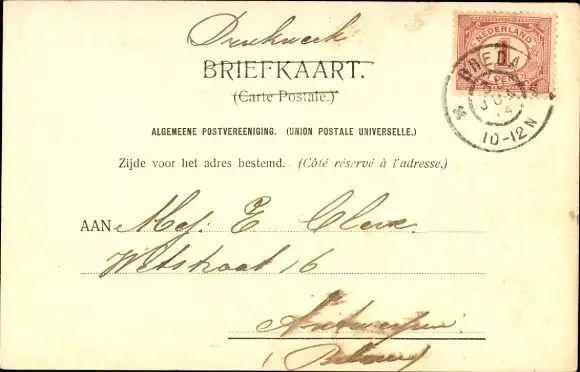 Drukwerk
NEDERLAND
1
CENT
BREDA
10-12 N
BRIEFKAART.
(Carte Postale.)
ALGEMEENE POSTVEREENIGING. (UNION POSTALE UNIVERSELLE.)
Zijde voor het adres bestemd. (Côté réservé à l'adresse.)
AAN Mej. E
Wetstraat 16
Antwerpen